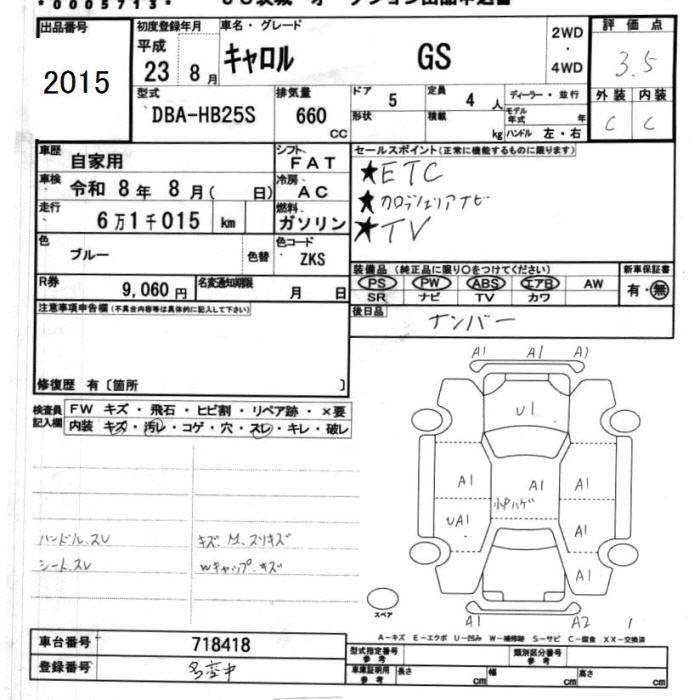 *0005713*
出品番号
2015
初度登録年月
平成
23 8月
車名・グレード
キャロル GS
2WD
・
4WD
評価点
3.5
外装 内装
C C
型式
DBA-HB25S
排気量
660
cc
ドア 5
形状
定員 4 人
積載 kg
ディーラー・並行
モデル年式 年
ハンドル 左・右
車歴
自家用
シフト
FAT
車検
令和 8年 8月( 日)
冷房
AC
走行
6万1千015 km
燃料
ガソリン
色
ブルー
色替
色コード
ZKS
R券
9,060円
名変通知期限
月 日
セールスポイント(正常に機能するものに限ります)
★ETC
★カロッツェリアナビ
★TV
装備品(純正品に限り○をつけてください)
PS PW ABS エアB AW
SR ナビ TV カワ
新車保証書
有・無
後日品
ナンバー
注意事項申告欄(不具合内容等は具体的に記入して下さい)
修復歴 有〔箇所 〕
検査員記入欄
FW キズ・飛石・ヒビ割・リペア跡・×要
内装 キズ・汚レ・コゲ・穴・スレ・キレ・破レ
ハンドル.スレ
シート.スレ
キズ.M.スリキズ
Wキャップ.キズ
A1 A1 A1
U1
A1 A1 A1
小Pハゲ
UA1 A1
A1
A1 A2 1
スペア
A-キズ E-エクボ U-凹み W-補修跡 S-サビ C-腐食 XX-交換済
車台番号
718418
登録番号
型式指定番号
参考
類別区分番号
参考
車庫証明用
参考
長さ cm
幅 cm
高さ cm